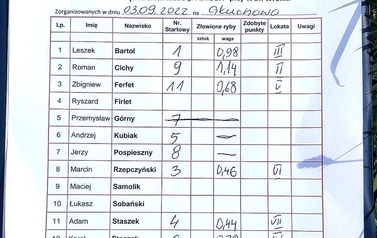 Zorganizowanych w dniu 03.09.2022 na Głuchowo
Lp. Imię Nazwisko Nr. Startowy Złowione ryby sztuk waga Zdobyte punkty Lokata Uwagi
1 Leszek Bartol 1 0,98 III
2 Roman Cichy 9 1,14 II
3 Zbigniew Ferfet 11 0,68 V
4 Ryszard Firlet
5 Przemysław Górny 7
6 Andrzej Kubiak 5 —
7 Jerzy Pospieszny 8 —
8 Marcin Rzepczyński 3 0,46 VI
9 Maciej Samolik
10 Łukasz Sobański
11 Adam Staszek 4 0,44 VII